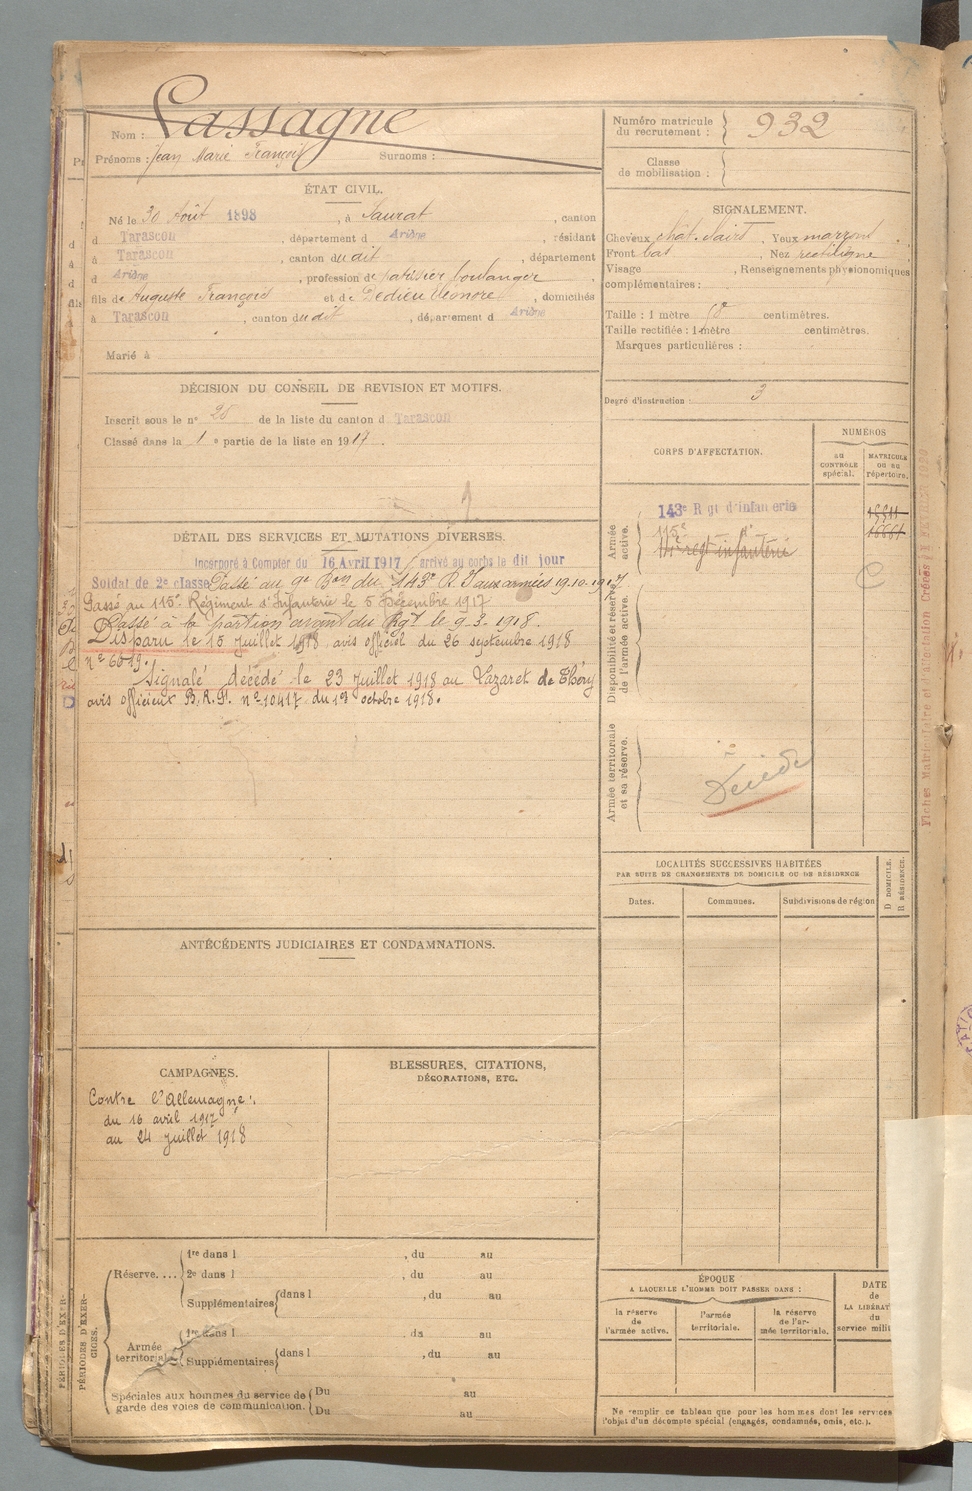 Nom : Lassagne
Prénoms : Jean Marie François Surnoms :
Numéro matricule du recrutement : 932
Classe de mobilisation :
ÉTAT CIVIL.
Né le 30 Août 1898, à Saurat, canton
d Tarascon, département d Ariège, résidant
à Tarascon, canton dudit, département
d Ariège, profession de patissier boulanger
fils de Auguste François et de Dedieu Léonore, domiciliés
à Tarascon, canton dudit, département d Ariège
Marié à
SIGNALEMENT.
Cheveux chât. clairs, Yeux marrons
Front bas, Nez rectiligne
Visage, Renseignements physionomiques
complémentaires :
Taille : 1 mètre centimètres.
Taille rectifiée : 1 mètre centimètres.
Marques particulières :
Degré d'instruction : 3
DÉCISION DU CONSEIL DE REVISION ET MOTIFS.
Inscrit sous le n° 25 de la liste du canton d Tarascon
Classé dans la 1 e partie de la liste en 1917.
DÉTAIL DES SERVICES ET MUTATIONS DIVERSES.
Incorporé à Compter du 16 Avril 1917, arrivé au corps le dit jour
Soldat de 2e classe Passé au 9e Bon du 143e R.I aux armées 19.10.1917
Passé au 115e Régiment d'Infanterie le 5 Décembre 1917
Passé à la portion avant du Rgt le 9.3.1918.
Disparu le 15 juillet 1918, avis officiel du 26 septembre 1918
Signalé décédé le 23 juillet 1918 au Lazaret de Théry
avis officieux B.R.P. n° 10417 du 1er octobre 1918.
CORPS D'AFFECTATION.
NUMÉROS
AU CONTRÔLE spécial.
MATRICULE OU AU répertoire.
Armée active.
143e Rgt d'infanterie
115e d°
regt infanterie
Disponibilité et réserve de l'armée active.
C
Armée territoriale et sa réserve.
Décédé
LOCALITÉS SUCCESSIVES HABITÉES
PAR SUITE DE CHANGEMENTS DE DOMICILE OU DE RÉSIDENCE
Dates.
Communes.
Subdivisions de région
D DOMICILE.
R RÉSIDENCE.
ANTÉCÉDENTS JUDICIAIRES ET CONDAMNATIONS.
CAMPAGNES.
Contre l'Allemagne :
du 16 avril 1917
au 24 juillet 1918
BLESSURES, CITATIONS,
DÉCORATIONS, ETC.
PÉRIODES D'EXERCICES.
Réserve....
1re dans l , du au
2e dans l , du au
Supplémentaires dans l , du au
Armée territoriale
1re dans l du au
Supplémentaires dans l , du au
Spéciales aux hommes du service de
garde des voies de communication.
Du au
Du au
ÉPOQUE
A LAQUELLE L'HOMME DOIT PASSER DANS :
la réserve de l'armée active.
l'armée territoriale.
la réserve de l'armée territoriale.
DATE
de
LA LIBÉRAT
du
service milit
Ne remplir ce tableau que pour les hommes dont les services
l'objet d'un décompte spécial (engagés, condamnés, omis, etc.).